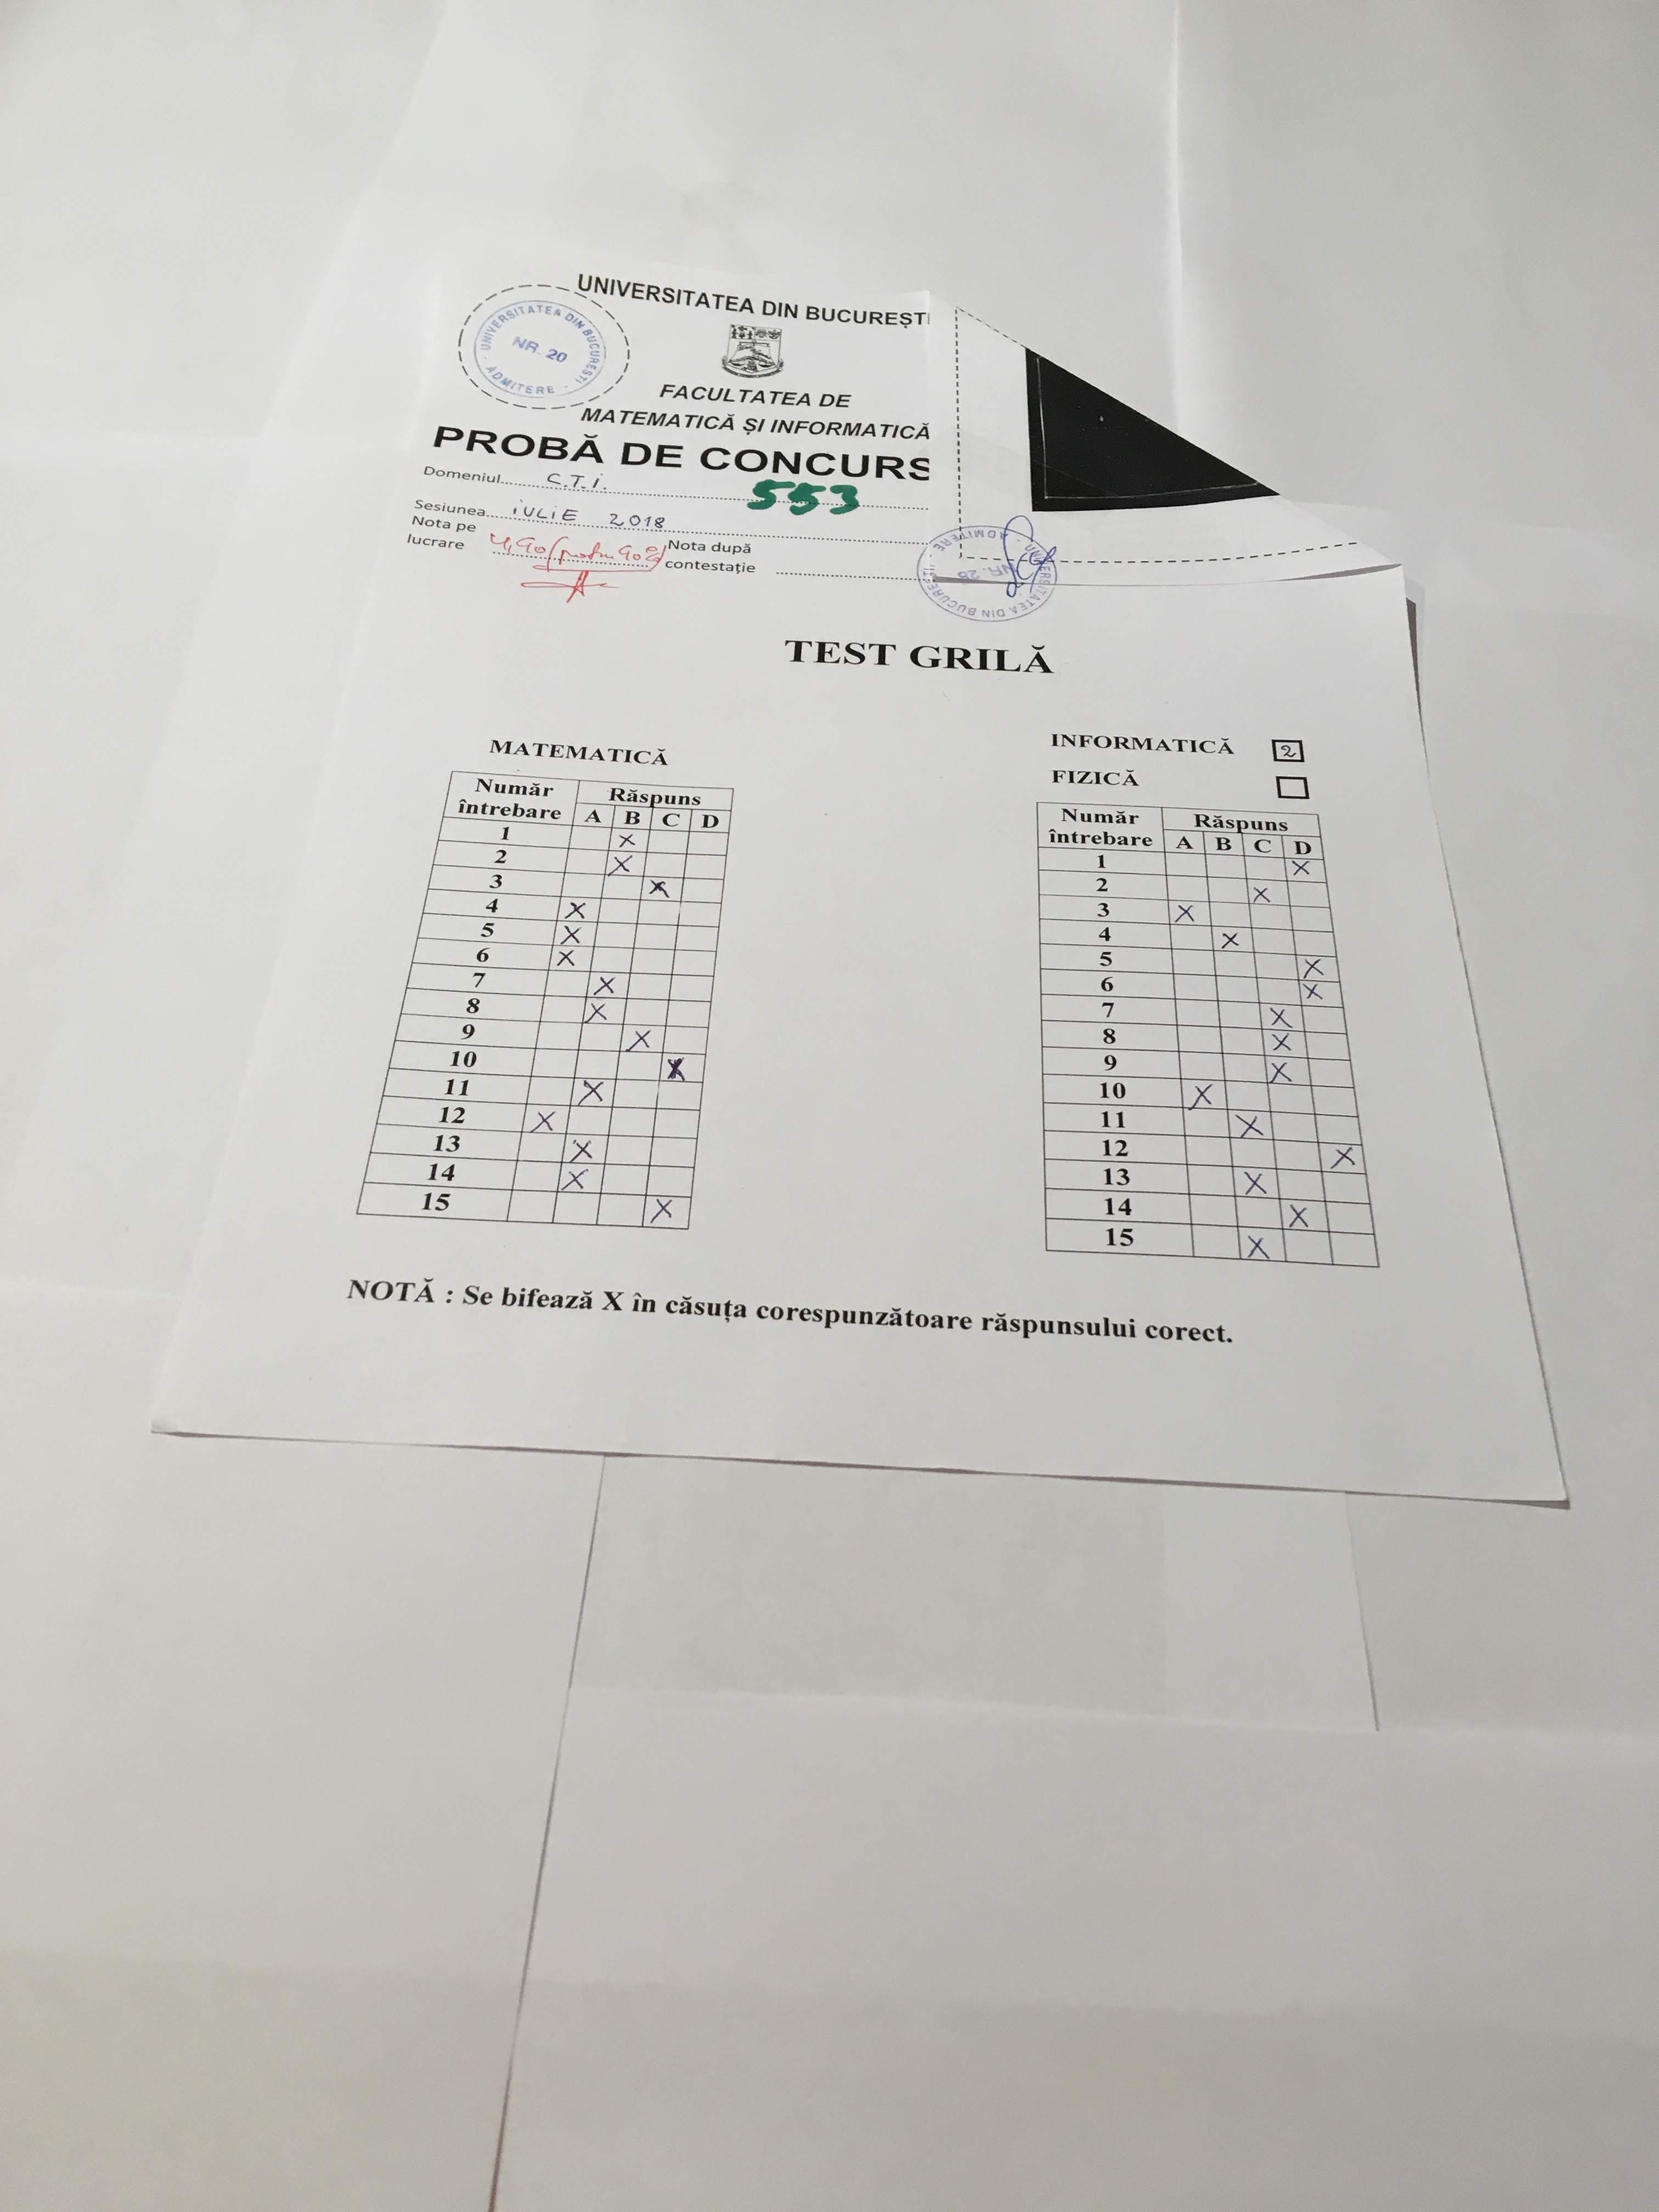 UNIVERSITATEA DIN BUCUREȘTI
UNIVERSITATEA DIN BUCUREȘTI
NR. 20
ADMITERE
FACULTATEA DE
MATEMATICĂ ȘI INFORMATICĂ
PROBĂ DE CONCURS
Domeniul C.T.I.
553
Sesiunea iULiE 2018
Nota pe
lucrare 4,90
Nota după
contestație
ADMITERE
UNIVERSITATEA DIN BUCUREȘTI
TEST GRILĂ
MATEMATICĂ
Număr
întrebare
Răspuns
A B C D
1 X
2 X
3 X
4 X
5 X
6 X
7 X
8 X
9 X
10 X
11 X
12 X
13 X
14 X
15 X
INFORMATICĂ 2
FIZICĂ
Număr
întrebare
Răspuns
A B C D
1 X
2 X
3 X
4 X
5 X
6 X
7 X
8 X
9 X
10 X
11 X
12 X
13 X
14 X
15 X
NOTĂ : Se bifează X în căsuța corespunzătoare răspunsului corect.